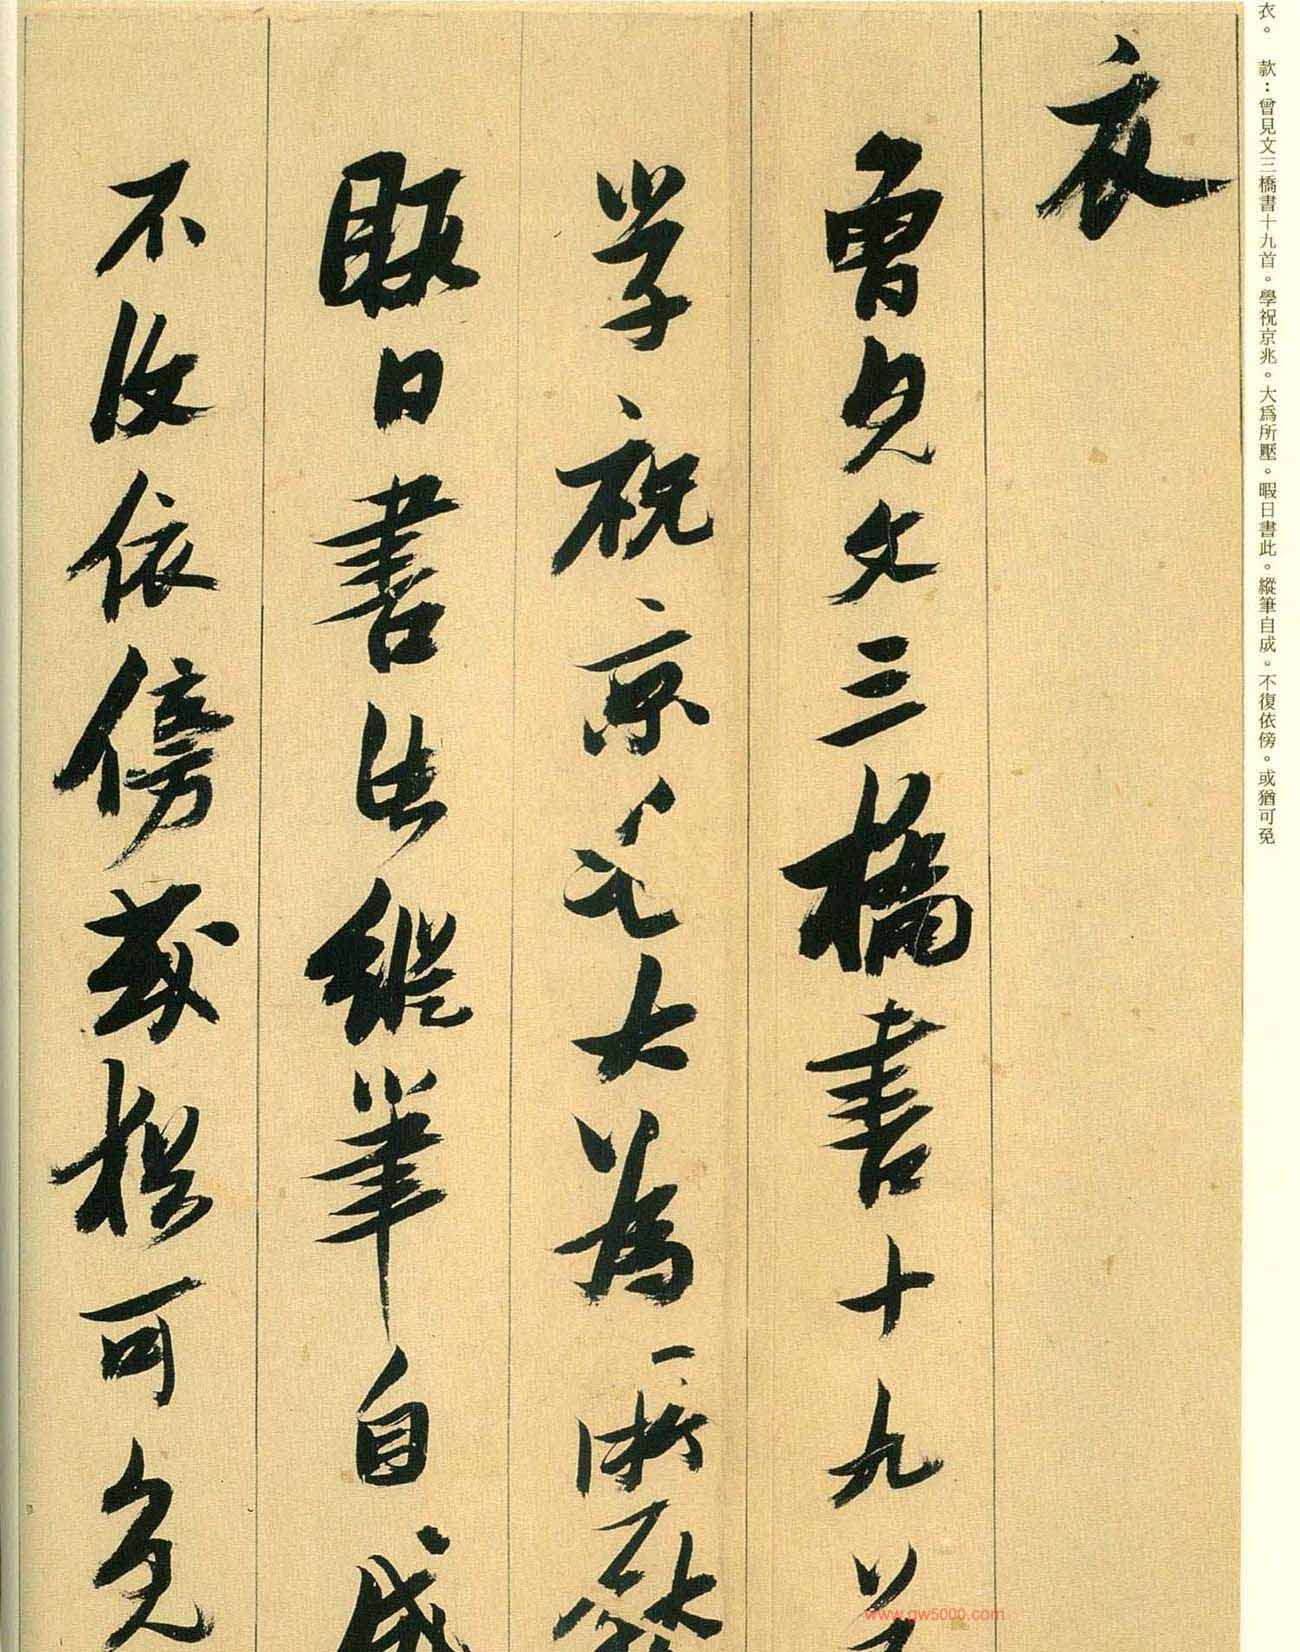 衣。　款：曾見文三橋書十九首。學祝京兆。大爲所壓。暇日書此。縱筆自成。不復依傍。或猶可免
衣
曾見文三橋書十九首
學祝京兆大爲所壓
暇日書此縱筆自成
不復依傍或猶可免
www.gw5000.com